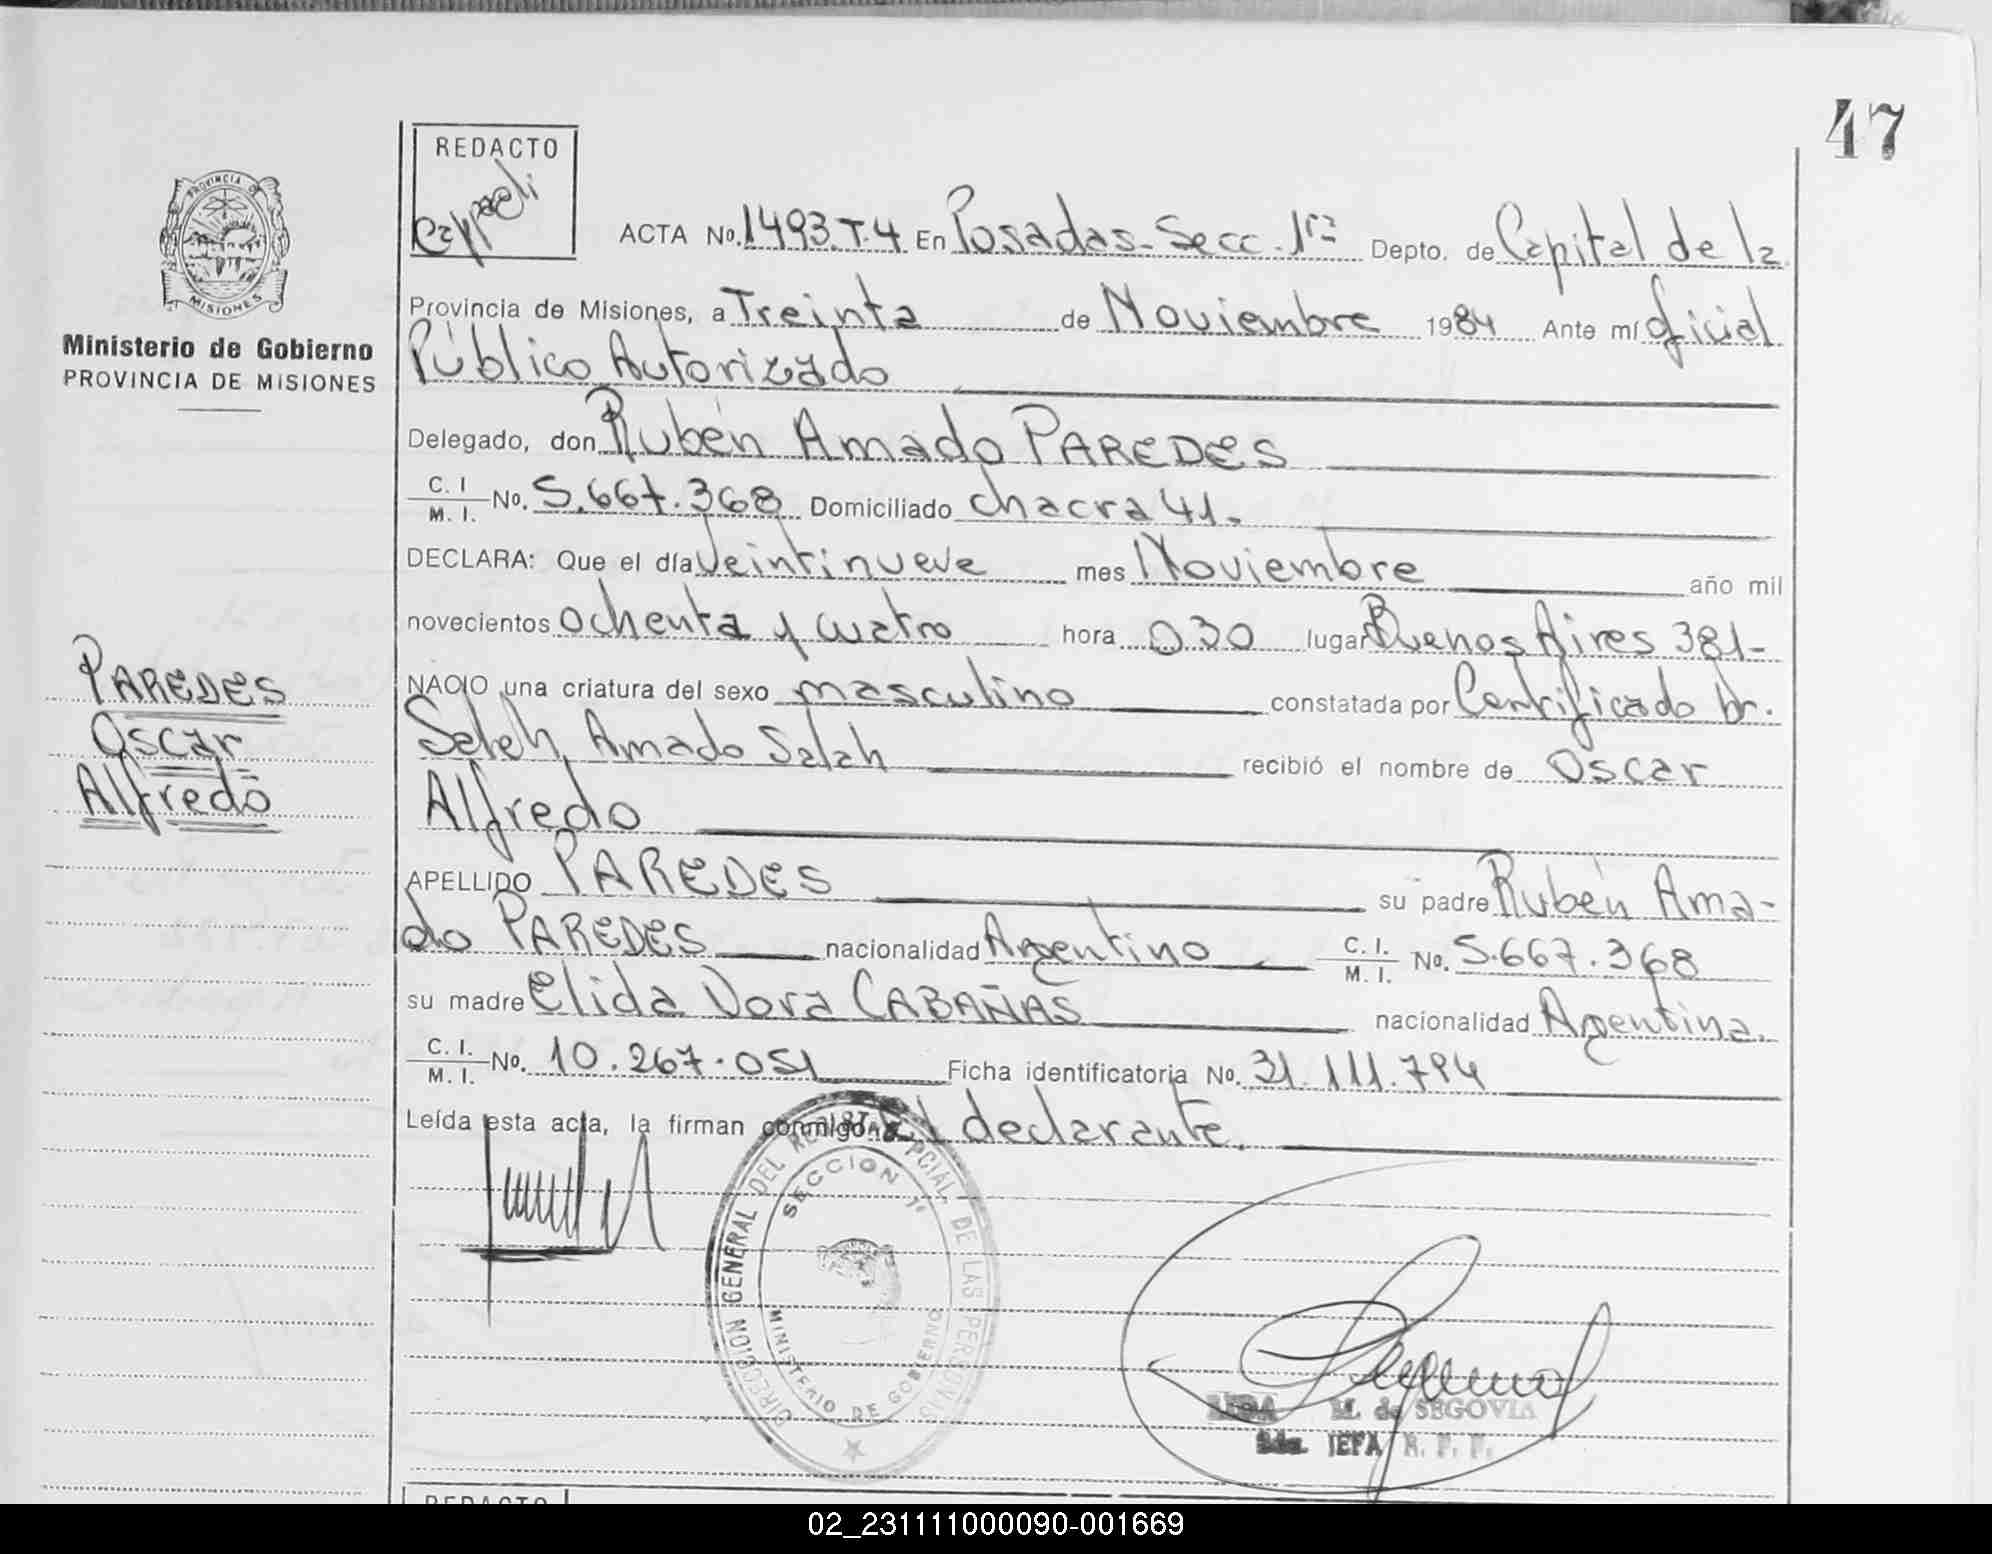 47
REDACTO
PROVINCIA DE
MISIONES
Ministerio de Gobierno
PROVINCIA DE MISIONES
ACTA No. 1493.T.4 En Posadas-Secc.1ra Depto. de Capital de la
Provincia de Misiones, a Treinta de Noviembre 1984 Ante mí Oficial
Público Autorizado
Delegado, don Rubén Amado PAREDES
C. I. M. I. No. 5.667.368 Domiciliado chacra 41.
DECLARA: Que el día Veintinueve mes Noviembre año mil
novecientos ochenta y cuatro hora 0.30 lugar Buenos Aires 381-
NACIO una criatura del sexo masculino constatada por Certificado Dr.
Saleh, Amado Salah recibió el nombre de Oscar
Alfredo
APELLIDO PAREDES su padre Rubén Ama-
do PAREDES nacionalidad Argentino C. I. M. I. No. 5.667.368
su madre Elida Dora CABAÑAS nacionalidad Argentina.
C. I. M. I. No. 10.267.051 Ficha identificatoria No. 31.111.794
Leída esta acta, la firman conmigo el declarante.
PAREDES
Oscar
Alfredo
DIRECCION GENERAL DEL REGIST. PCIAL. DE LAS PERSONAS
SECCION 1ª
MINISTERIO DE GOBIERNO
M. de SEGOVIA
2da. JEFA R. P. P.
REDACTO
02_231111000090-001669